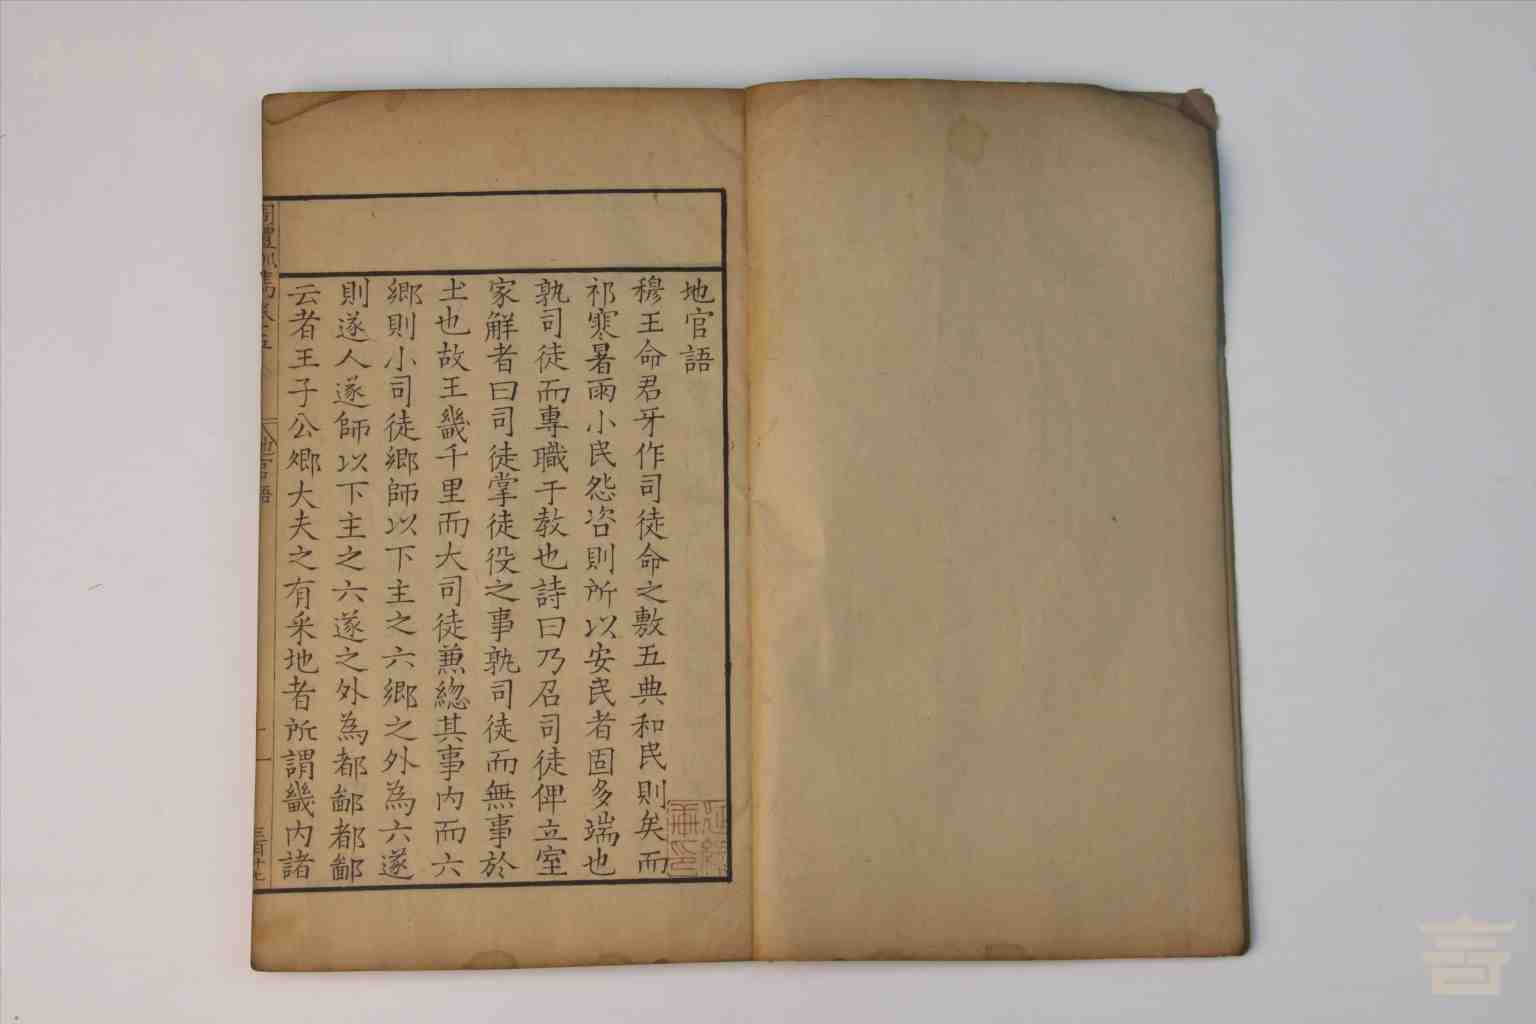 地官語
穆王命君牙作司徒命之敷五典和民則矣而
祁寒暑雨小民怨咨則所以安民者固多端也
孰司徒而專職于教也詩曰乃召司徒俾立室
家解者曰司徒掌徒役之事孰司徒而無事於
土也故王畿千里而大司徒兼總其事內而六
鄉則小司徒鄉師以下主之六鄉之外為六遂
則遂人遂師以下主之六遂之外為都鄙都鄙
云者王子公卿大夫之有采地者所謂畿内諸
地官語